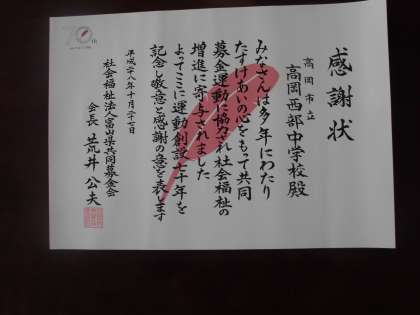 感謝状
高岡市立
高岡西部中学校殿
みなさんは多年にわたり
たすけあいの心をもって共同
募金運動に協力され社会福祉の
増進に寄与されました
よってここに運動創設七十年を
記念し敬意と感謝の意を表します
平成二十八年十月二十七日
社会福祉法人富山県共同募金会
会長 荒井公夫
70th